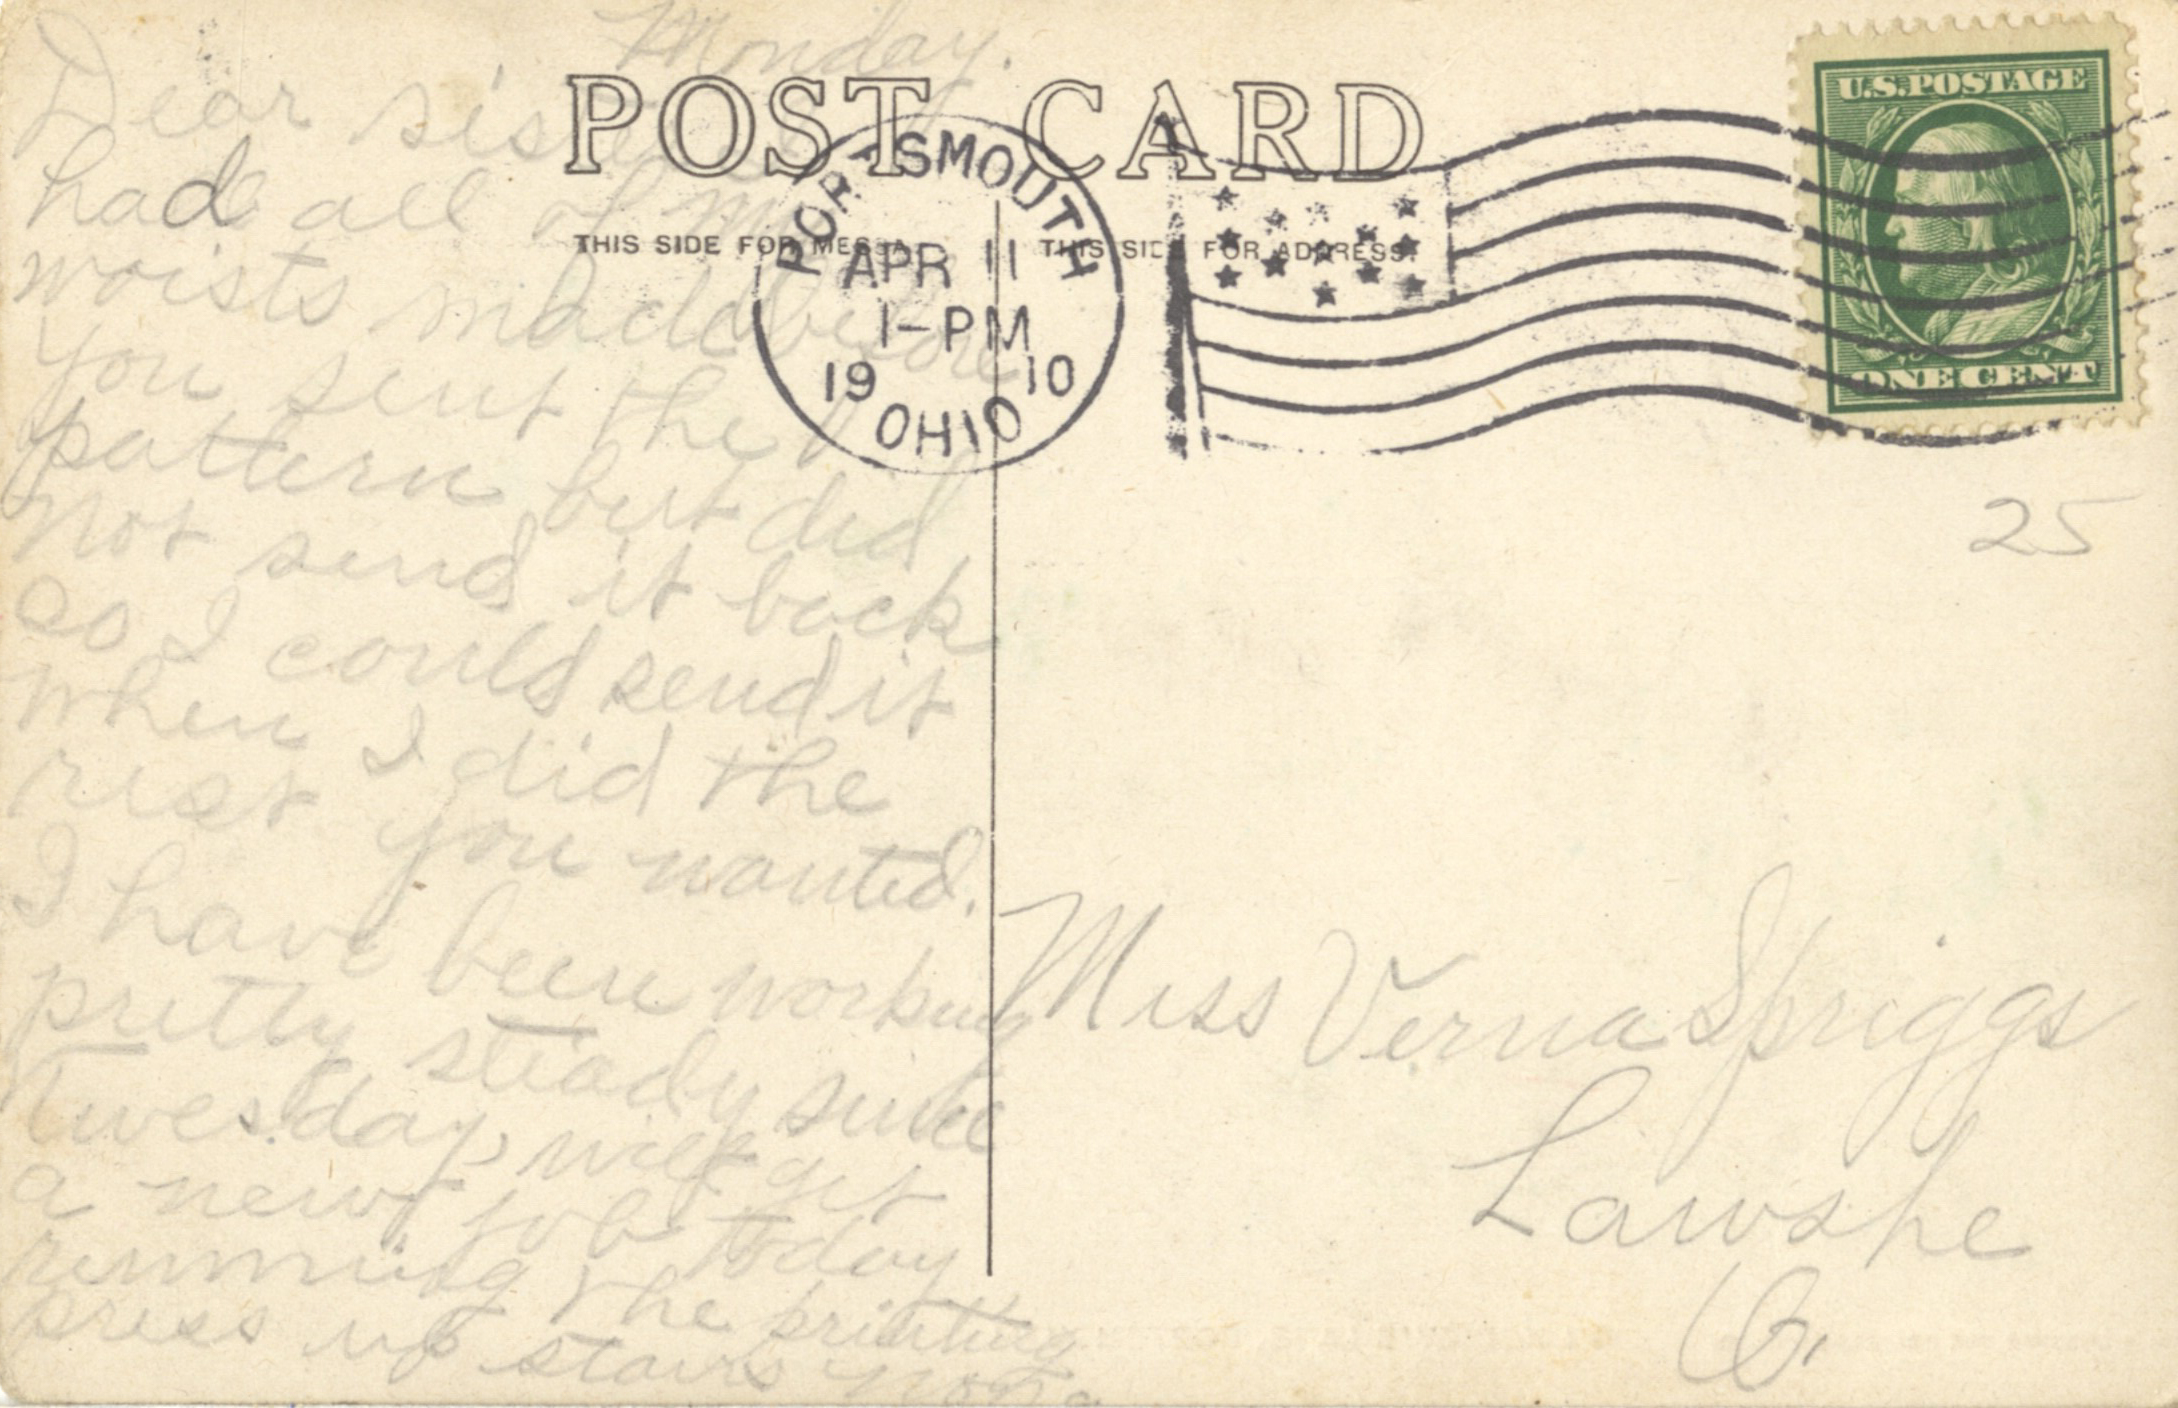 Monday.
Dear sister
had all of my
waists made before
you sent the
pattern but did
not send it back
so I could send it
when I did the
rest you wanted.
I have been working
pretty steady since
Tuesday, will get
a new job today
running the printing
press up stairs
POST CARD
THIS SIDE FOR MESSA
THIS SIDE FOR ADDRESS.
PORTSMOUTH
APR 11
1-PM
1910
OHIO
U.S. POSTAGE
ONE CENT
25
Miss Verna Spriggs
Lawshe
O.